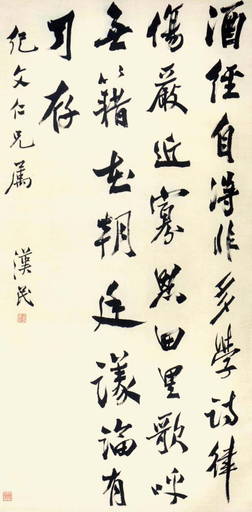 酒經自得非多學詩律
傷嚴近寡恩田里歌呼
無籍在朝廷議論有
司存
紀文仁兄屬
漢民